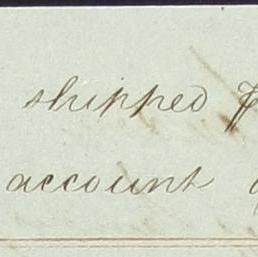 shipped
account